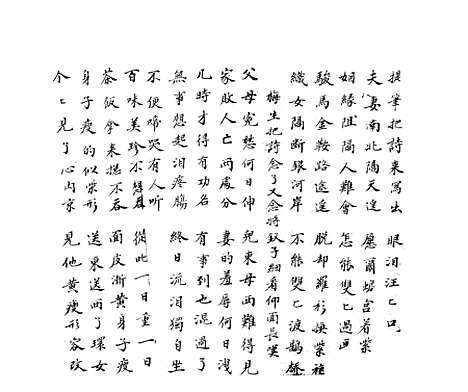 提筆把詩來寫出 眼淚汪〻
夫妻南北隔天邊 愿爾蟾宮着紫
姻緣阻隔人難會 怎能雙〻過画
駿馬金鞍路途遙 脱却羅衫換紫
織女隔断銀河岸 不能雙〻渡鵲橋
梅生把詩念了又念將釵子細看仰面長嘆
父母冤愁何日伸 兒東母西難得見
家敗人亡兩處分 妻的羞辱何日洩
几時才得有功名 有事到也混過了
無事想起淚疼腸 終日流淚獨自坐
不便啼哭有人听
百味美珍不想 從此一日重一日
茶飯拿來 不吞 面皮漸黄身子瘦
身子瘦的似柴形 送東送西丫環女
个〻見了心內京 見他黄瘦形容改